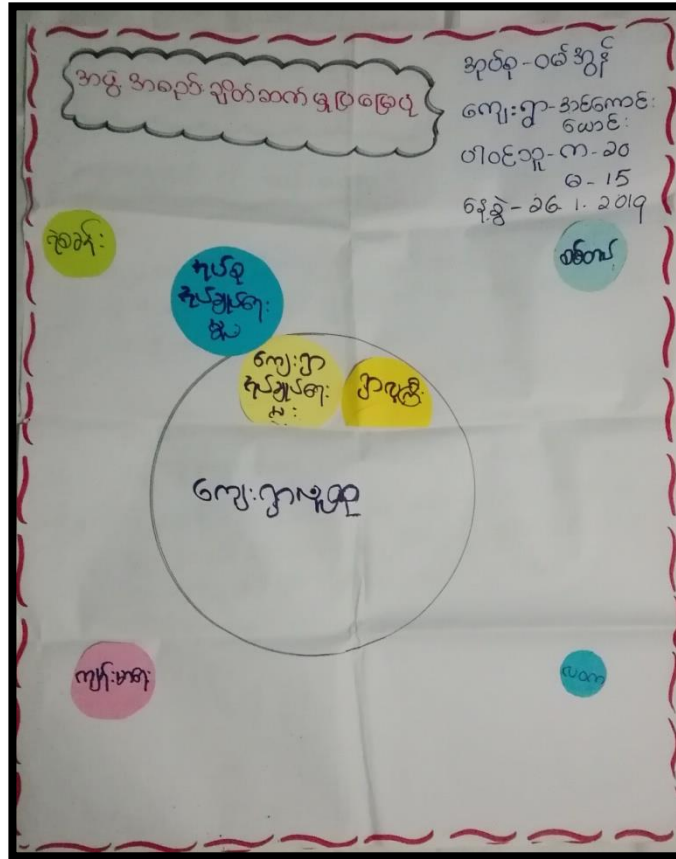 အဖွဲ့အစည်းချိတ်ဆက်မှုပြမြေပုံ
အုပ်စု - ဝမ်အွန်
ကျေးရွာ - အင်ကောင်း
ယောင်း
ပါဝင်သူ - က - ၁၀
မ - 15
နေ့စွဲ - ၁၆. ၊ . ၂၀၁၅
ရဲစခန်း
စစ်တပ်
အုပ်စု
အုပ်ချုပ်ရေး
ကျေးရွာ
အုပ်ချုပ်ရေး
မှူး
ရွာလူကြီး
ကျေးရွာလူထု
ကျန်းမာရေး
လဝက